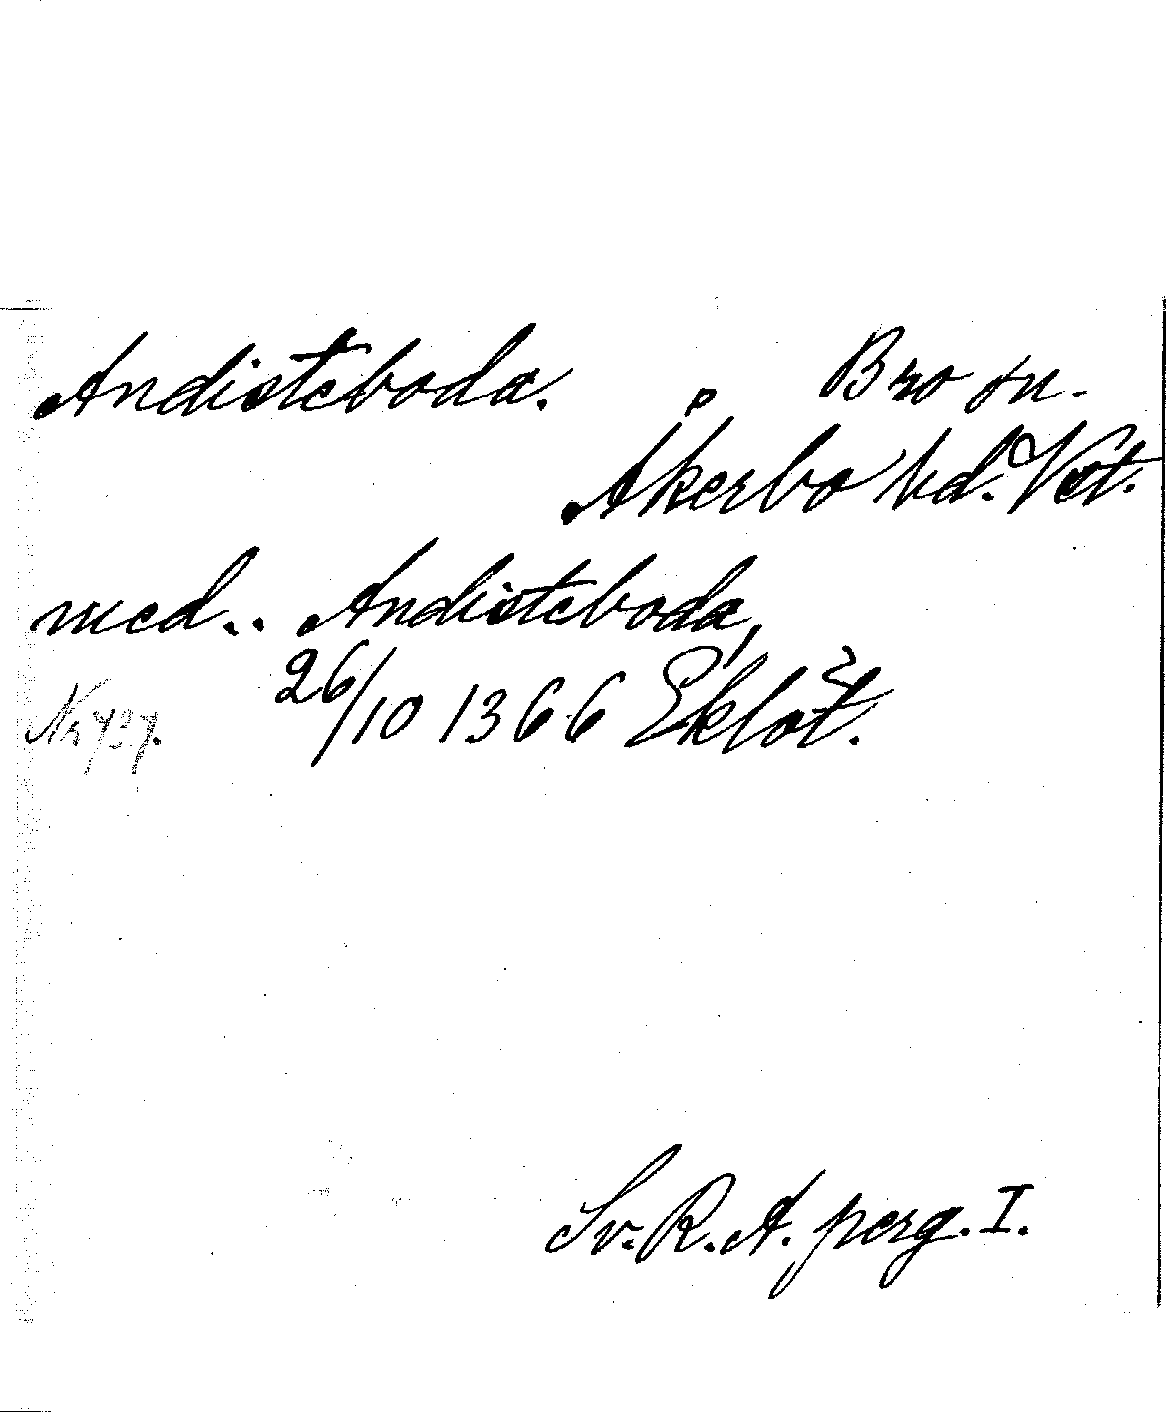 Andisteboda. Bro sn.
Åkerbo hd. Vst.
med.. Andisteboda,
26/10 1366 Eklöt.
Nr 727.
Sv. R. A. perg. I.